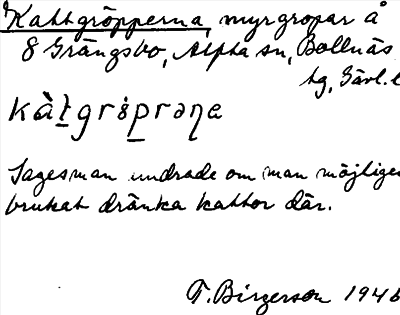 Kattgröpperna, myrgropar å
8 Grängsbo, Alfta sn, Bollnäs
tg, Gävl.l
kàt̠grɵ̀p̠rəɳa
Sagesman undrade om man möjligen
brukat dränka kattor där.
T. Birgerson 1946